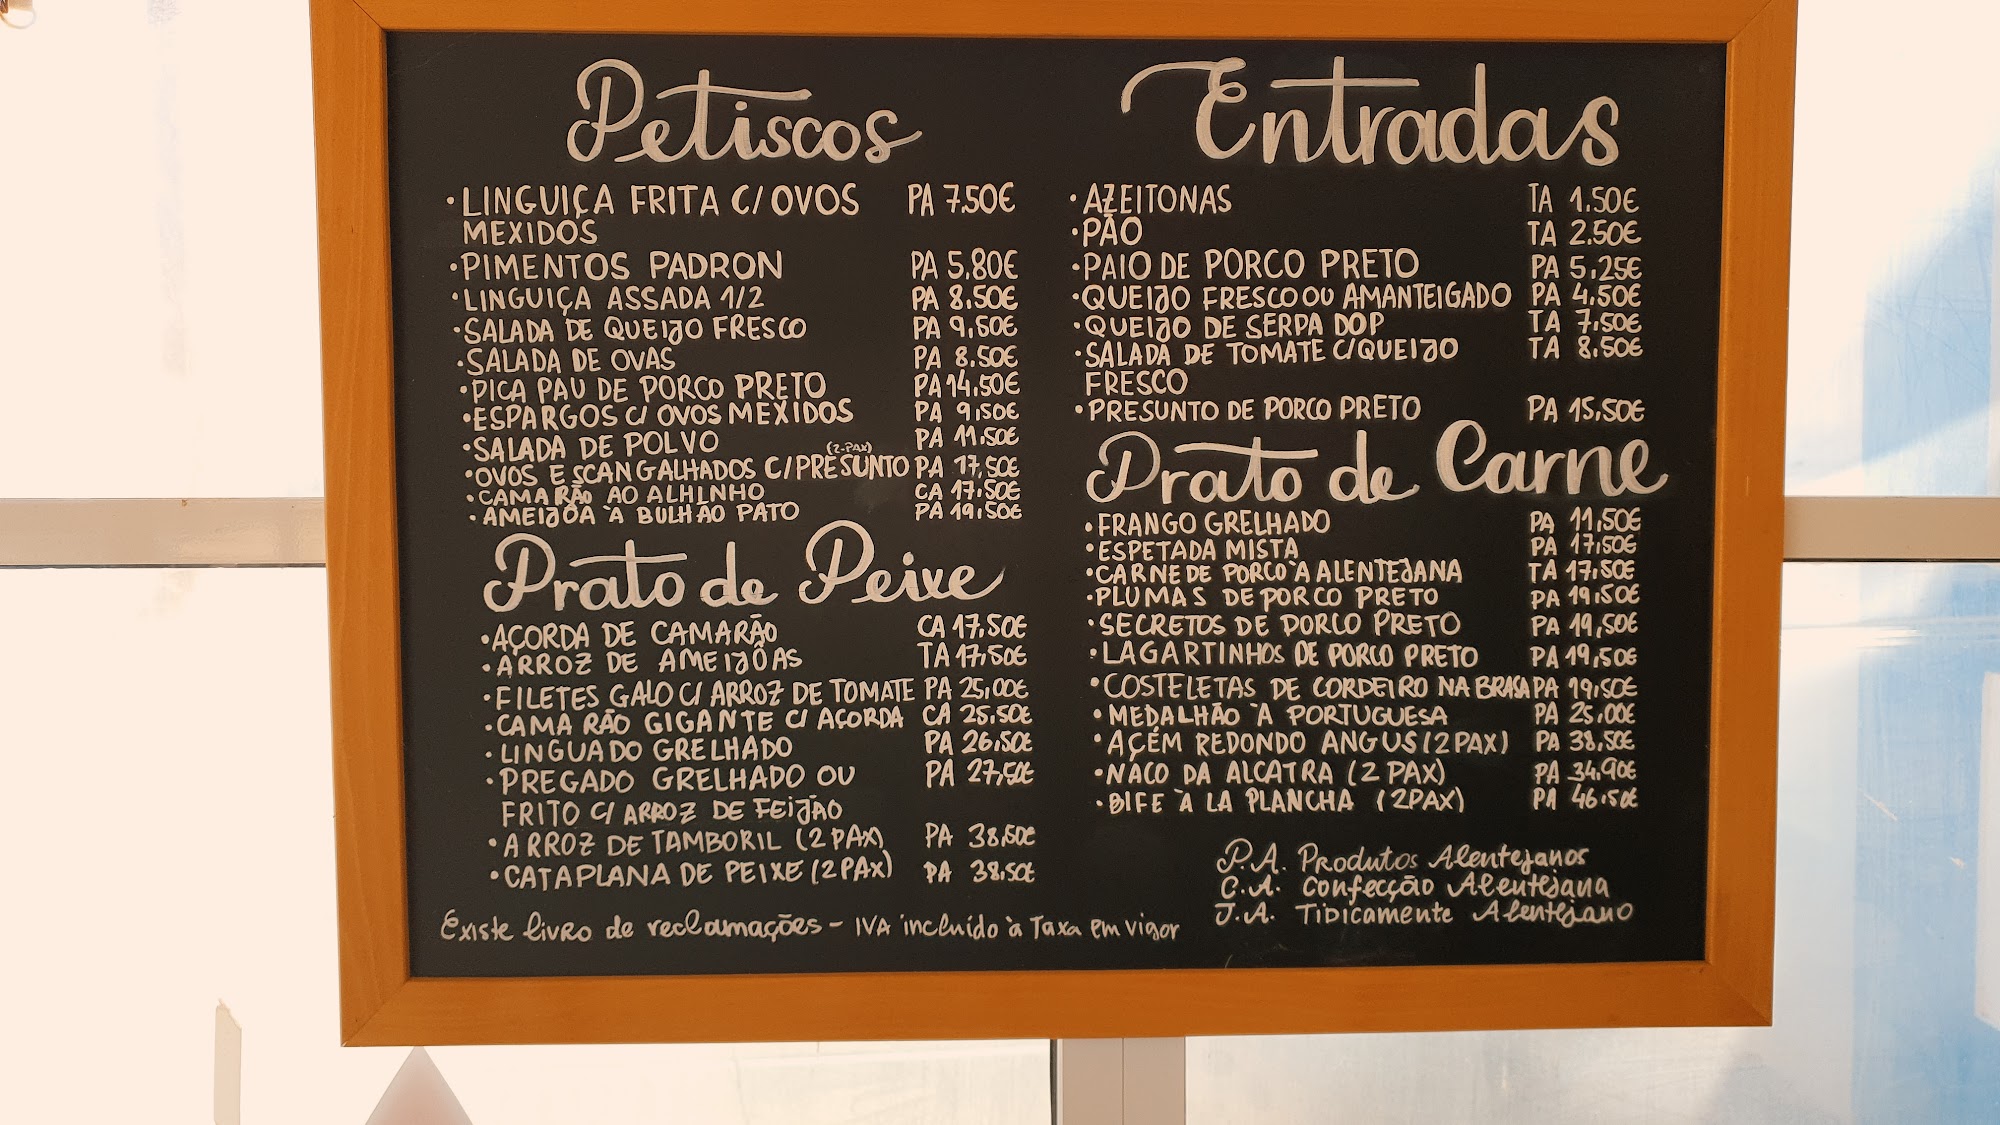 Petiscos
·LINGUIÇA FRITA C/OVOS PA 7.50€
MEXIDOS
·PIMENTOS PADRON PA 5.80€
·LINGUIÇA ASSADA 1/2 PA 8.50€
·SALADA DE QUEIJO FRESCO PA 9,50€
·SALADA DE OVAS PA 8.50€
·PICA PAU DE PORCO PRETO PA 14,50€
·ESPARGOS C/ OVOS MEXIDOS PA 9,50€
·SALADA DE POLVO PA 11.50€
(2-PAX)
·OVOS ESCANGALHADOS C/PRESUNTO PA 17,50€
·CAMARÃO AO ALHINHO CA 17.50€
·AMEIJÔA À BULHÃO PATO PA 19,50€
Prato de Peixe
·AÇORDA DE CAMARÃO CA 17,50€
·ARROZ DE AMEIJÔAS TA 17,50€
·FILETES GALO C/ ARROZ DE TOMATE PA 25,00€
·CAMARÃO GIGANTE C/ AÇORDA CA 25,50€
·LINGUADO GRELHADO PA 26,50€
·PREGADO GRELHADO OU PA 27,50€
FRITO C/ ARROZ DE FEIJÃO
·ARROZ DE TAMBORIL (2 PAX) PA 38,50€
·CATAPLANA DE PEIXE (2PAX) PA 38,50€
Existe livro de reclamações - IVA incluído à Taxa em vigor
Entradas
·AZEITONAS TA 1.50€
·PÃO TA 2.50€
·PAIO DE PORCO PRETO PA 5,25€
·QUEIJO FRESCO OU AMANTEIGADO PA 4.50€
·QUEIJO DE SERPA DOP TA 7.50€
·SALADA DE TOMATE C/QUEIJO TA 8.50€
FRESCO
·PRESUNTO DE PORCO PRETO PA 15,50€
Prato de Carne
·FRANGO GRELHADO PA 11,50€
·ESPETADA MISTA PA 17,50€
·CARNE DE PORCO À ALENTEJANA TA 17,50€
·PLUMAS DE PORCO PRETO PA 19,50€
·SECRETOS DE PORCO PRETO PA 19,50€
·LAGARTINHOS DE PORCO PRETO PA 19,50€
·COSTELETAS DE CORDEIRO NA BRASA PA 19,50€
·MEDALHÃO À PORTUGUESA PA 25,00€
·AÇÉM REDONDO ANGUS (2PAX) PA 38,50€
·NACO DA ALCATRA (2 PAX) PA 34,90€
·BIFE À LA PLANCHA (2PAX) PA 46,50€
P.A. Produtos Alentejanos
C.A. Confecção Alentejana
T.A. Tipicamente Alentejano